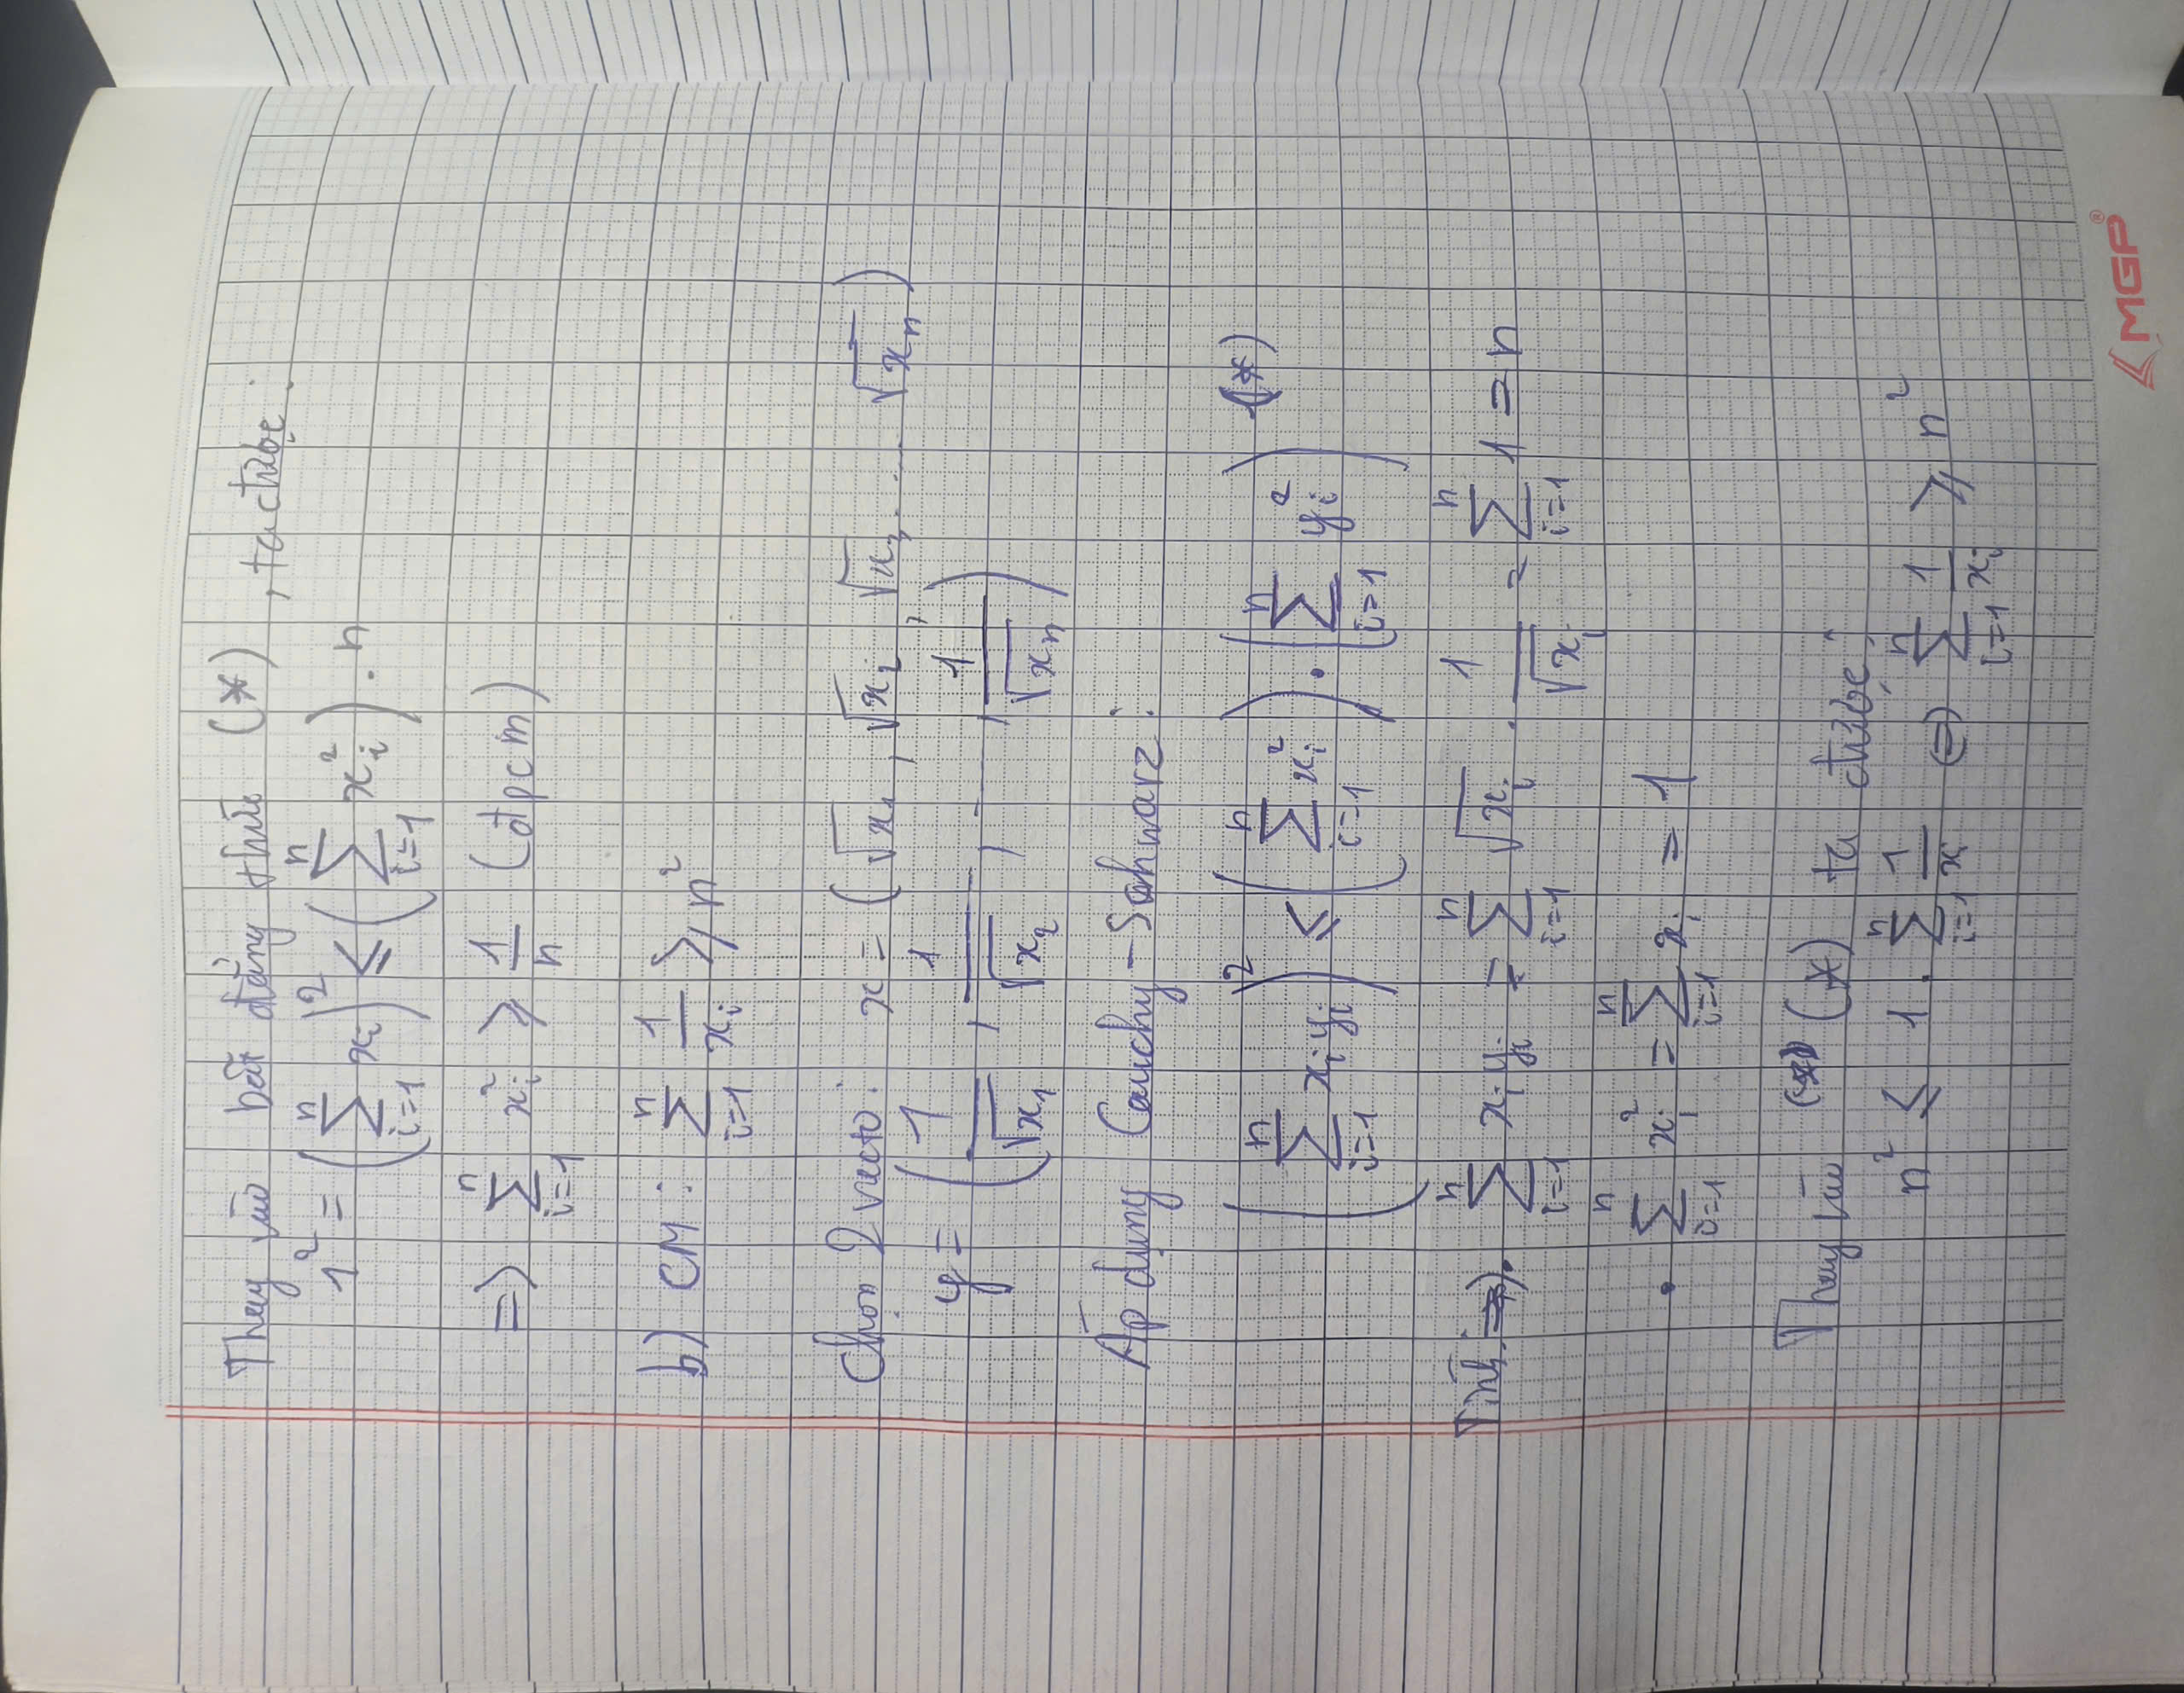 Thay vào bất đẳng thức (*), ta được:
1² = (∑ᵢ₌₁ⁿ xᵢ)² ≤ (∑ᵢ₌₁ⁿ xᵢ²) . n
=> ∑ᵢ₌₁ⁿ xᵢ² ≥ 1/n (đpcm)
b) CM : ∑ᵢ₌₁ⁿ 1/xᵢ ≥ n²
Chọn 2 vectơ: x = (√x₁, √x₂, √x₃, .... √xₙ)
y = (1/√x₁, 1/√x₂, ..., 1/√xₙ)
Áp dụng Cauchy - Schwarz:
(∑ᵢ₌₁ⁿ xᵢyᵢ)² ≤ (∑ᵢ₌₁ⁿ xᵢ²) . (∑ᵢ₌₁ⁿ yᵢ²) (*)
Tính: • ∑ᵢ₌₁ⁿ xᵢyᵢ = ∑ᵢ₌₁ⁿ √xᵢ . 1/√xᵢ = ∑ᵢ₌₁ⁿ 1 = n
• ∑ᵢ₌₁ⁿ xᵢ² = ∑ᵢ₌₁ⁿ xᵢ = 1
Thay vào (*) ta được:
n² ≤ 1 . ∑ᵢ₌₁ⁿ 1/xᵢ (=) ∑ᵢ₌₁ⁿ 1/xᵢ ≥ n²
MGP®